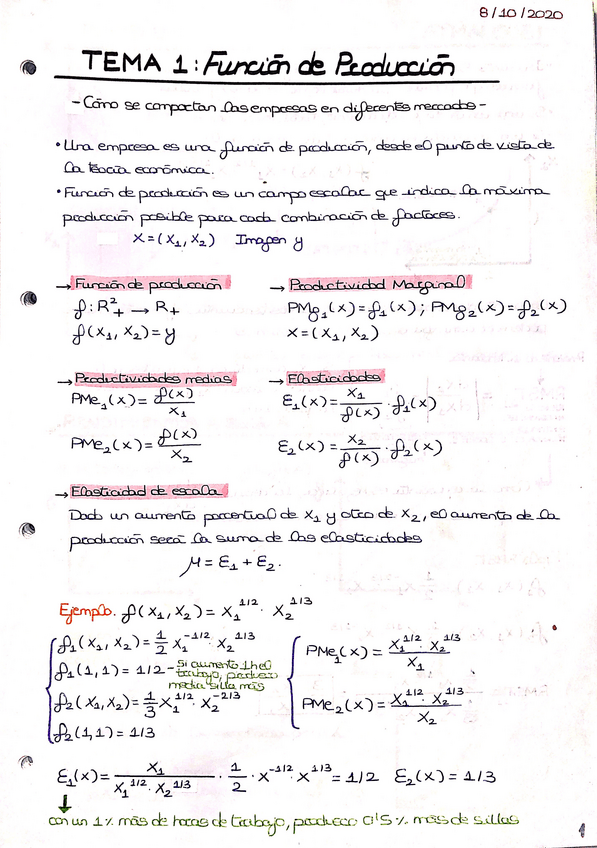 8/10/2020
TEMA 1: Función de Producción
- Cómo se comportan las empresas en diferentes mercados -
• Una empresa es una función de producción, desde el punto de vista de
la teoría económica.
• Función de producción es un campo escalar que indica la máxima
producción posible para cada combinación de factores.
X = (X₁, X₂) Imagen y
→ Función de producción
f: R²₊ → R₊
f(X₁, X₂) = y
→ Productividad Marginal
PMg₁(x) = f₁(x); PMg₂(x) = f₂(x)
X = (X₁, X₂)
→ Productividades medias
PMe₁(x) = f(x)/X₁
PMe₂(x) = f(x)/X₂
→ Elasticidades
Ɛ₁(x) = X₁/f(x) · f₁(x)
Ɛ₂(x) = X₂/f(x) · f₂(x)
→ Elasticidad de escala
Dado un aumento porcentual de X₁ y otro de X₂, el aumento de la
producción será la suma de las elasticidades
μ = Ɛ₁ + Ɛ₂.
Ejemplo. f(X₁, X₂) = X₁^1/2 · X₂^1/3
f₁(X₁, X₂) = 1/2 X₁^-1/2 · X₂^1/3
f₁(1,1) = 1/2 - Si aumento 1h el
trabajo, produzco
media silla más
f₂(X₁, X₂) = 1/3 X₁^1/2 · X₂^-2/3
f₂(1,1) = 1/3
PMe₁(x) = X₁^1/2 · X₂^1/3 / X₁
PMe₂(x) = X₁^1/2 · X₂^1/3 / X₂
Ɛ₁(x) = X₁ / X₁^1/2 · X₂^1/3 · 1/2 · X^-1/2 · X^1/3 = 1/2 Ɛ₂(x) = 1/3
↓
con un 1% más de horas de trabajo, produzco 0'5% más de sillas
1